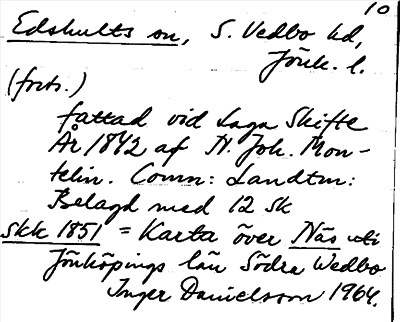 10
Edshults sn, S. Vedbo hd,
Jönk. l.
(forts.)
fattad vid Laga Skifte
År 1842 af N. Joh. Mon-
telin. Comn: Landtm:
Belagd med 12 sk
skk 1851 = Karta över Näs uti
Jönköpings län Södra Wedbo
Inger Danielsson 1964.